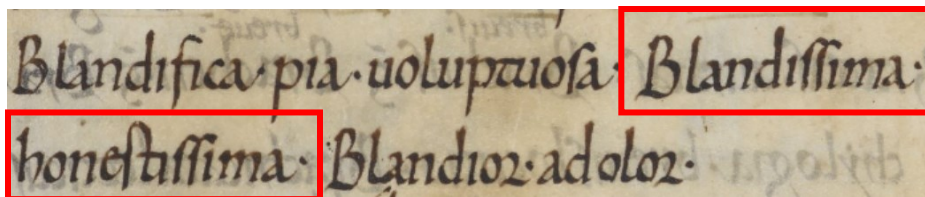 Blandifica· pia· uoluptuosa· Blandissima·
honestissima· Blandior· adolor·